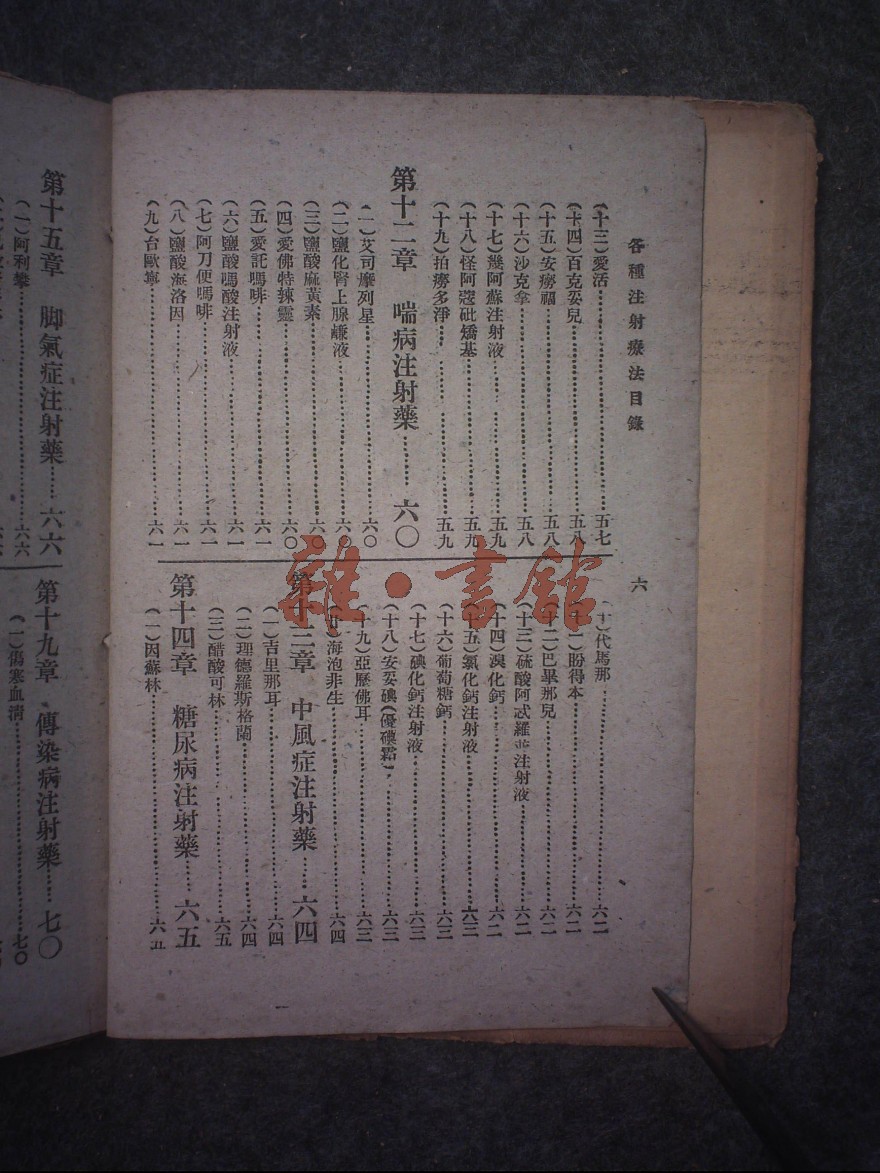 各種注射療法目錄
六
(十三)愛活……五七
(十四)百克妥兒……五八
(十五)安癆福……五八
(十六)沙克拿……五八
(十七)幾阿蘇注射液……五九
(十八)怪阿蔻砒矯基……五九
(十九)拍癆多淨……五九
第十二章 喘病注射藥……六〇
(一)艾司摩列星……六〇
(二)鹽化腎上腺鹻液……六〇
(三)鹽酸麻黃素……六〇
(四)愛佛特辣靈……六〇
(五)愛託嗎啡……六一
(六)鹽酸嗎酸注射液……六一
(七)阿刀便嗎啡……六一
(八)鹽酸海洛因……六一
(九)台歐寧……六一
(十)代馬那……六二
(十一)盼得本……六二
(十二)巴畢那兒……六二
(十三)硫酸阿忒羅並注射液……六二
(十四)溴化鈣……六二
(十五)氯化鈣注射液……六三
(十六)葡萄糖鈣……六三
(十七)碘化鈣注射液……六三
(十八)安妥碘(優碘霜)……六三
(十九)亞歷佛耳……六三
(二十)海泡非生……六四
第十三章 中風症注射藥……六四
(一)吉里那耳……六四
(二)理德羅斯格蘭……六四
(三)醋酸可林……六五
第十四章 糖尿病注射藥……六五
(一)因蘇林……六五
第十五章 脚氣症注射藥……六六
(一)阿利拏……六六
第十九章 傳染病注射藥……七〇
(一)傷寒血清……七〇
雜·書館